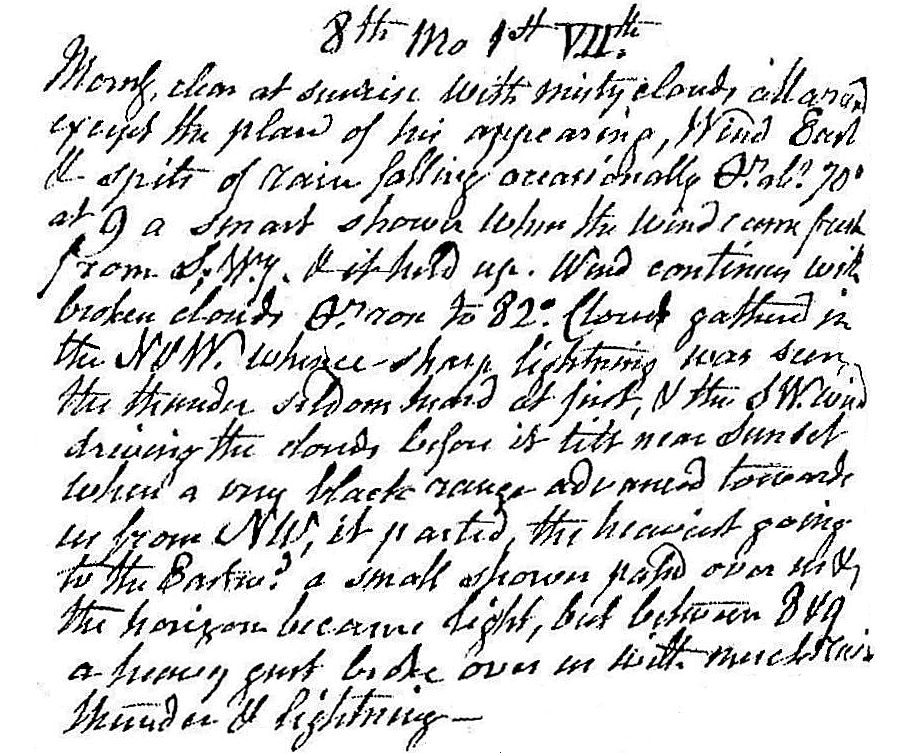 8th Mo 1st VIIth.
Morng. clear at sunrise with misty clouds all arond
except the place of his appearing, Wind East
& spits of rain falling occasionally Thr. abt. 70°
at 9 a smart shower when the wind came fresh
from S.Wy. & it held up. Wind continues with
broken clouds Thr. rose to 82°. Clouds gathered in
the N & W. whence sharp lightning was seen,
the thunder seldom heard at first, & the SW. wind
driving the clouds before it till near Sunset
when a very black range advanced towards
us from NW, it parted, the heaviest going
to the Eastwd. a small shower passd over us &
the horizon became light, but between 8 & 9
a heavy gust broke over us with much rain
thunder & lightning —